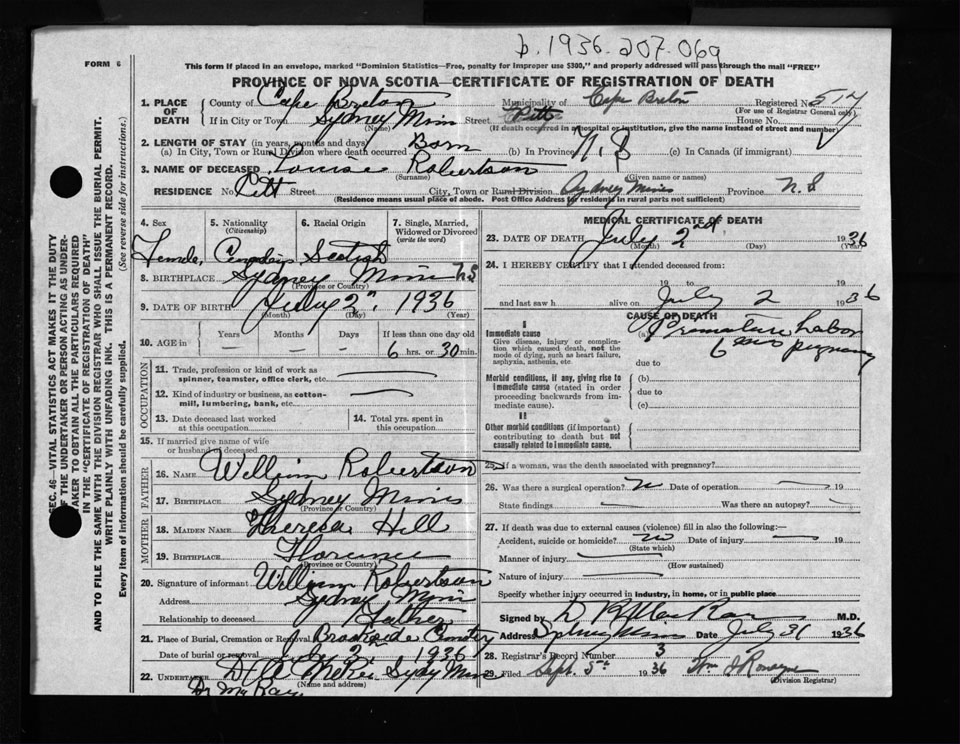 b. 1936. 207. 069
FORM 6
This form if placed in an envelope, marked "Dominion Statistics—Free, penalty for improper use $300," and properly addressed will pass through the mail "FREE"
PROVINCE OF NOVA SCOTIA—CERTIFICATE OF REGISTRATION OF DEATH
1. PLACE OF DEATH County of Cape Breton Municipality of Cape Breton Registered No. 57
(For use of Registrar General only)
If in City or Town Sydney Mines (Name) Street Pitt House No.
(If death occurred in a hospital or institution, give the name instead of street and number)
2. LENGTH OF STAY (in years, months and days)
(a) In City, Town or Rural Division where death occurred Born (b) In Province N.S (c) In Canada (if immigrant)
3. NAME OF DECEASED Louise Robertson
(Surname) (Given name or names)
RESIDENCE No. Pitt Street City, Town or Rural Division Sydney Mines Province N.S
(Residence means usual place of abode. Post Office Address for residents in rural parts not sufficient)
4. Sex 5. Nationality (Citizenship) 6. Racial Origin 7. Single, Married, Widowed or Divorced (write the word)
Female Canadian Scotish
8. BIRTHPLACE Sydney Mines N.S
(Province or Country)
9. DATE OF BIRTH July 2" 1936
(Month) (Day) (Year)
10. AGE in Years Months Days If less than one day old
6 hrs. or 30 min.
OCCUPATION
11. Trade, profession or kind of work as spinner, teamster, office clerk, etc.
12. Kind of industry or business, as cotton-mill, lumbering, bank, etc.
13. Date deceased last worked at this occupation
14. Total yrs. spent in this occupation
15. If married give name of wife or husband of deceased
FATHER
16. NAME William Robertson
17. BIRTHPLACE Sydney Mines
(Province or Country)
MOTHER
18. MAIDEN NAME Theresa Hill
19. BIRTHPLACE Florence
(Province or Country)
20. Signature of informant William Robertson
Address Sydney Mines
Relationship to deceased Father
21. Place of Burial, Cremation or Removal Brookside Cemetery
Date of burial or removal July 2" 1936
22. UNDERTAKER Sydney Mines
(Name and address)
Dr McKay
MEDICAL CERTIFICATE OF DEATH
23. DATE OF DEATH July 2nd 1936
(Month) (Day) (Year)
24. I HEREBY CERTIFY that I attended deceased from:
19 to 19
and last saw h alive on July 2 1936
CAUSE OF DEATH
I
Immediate cause
Give disease, injury or complication which caused death, not the mode of dying, such as heart failure, asphyxia, asthenia, etc.
(a) Premature Labor
6 mos pregnancy
due to
Morbid conditions, if any, giving rise to immediate cause (stated in order proceeding backwards from immediate cause).
(b)
due to
(c)
II
Other morbid conditions (if important) contributing to death but not causally related to immediate cause.
25. If a woman, was the death associated with pregnancy?
26. Was there a surgical operation? no Date of operation 19
State findings Was there an autopsy?
27. If death was due to external causes (violence) fill in also the following:—
Accident, suicide or homicide? no Date of injury 19
(State which)
Manner of injury
(How sustained)
Nature of injury
Specify whether injury occurred in industry, in home, or in public place
Signed by M.D.
Address Sydney Mines Date July 31 1936
28. Registrar's Record Number 3
Filed Sept. 5th 1936
(Division Registrar)
SEC. 46—VITAL STATISTICS ACT MAKES IT THE DUTY
OF THE UNDERTAKER OR PERSON ACTING AS UNDER-
TAKER TO OBTAIN ALL THE PARTICULARS REQUIRED
IN THE "CERTIFICATE OF REGISTRATION OF DEATH"
AND TO FILE THE SAME WITH THE DIVISION REGISTRAR WHO SHALL ISSUE THE BURIAL PERMIT.
WRITE PLAINLY WITH UNFADING INK. THIS IS A PERMANENT RECORD.
Every item of information should be carefully supplied. (See reverse side for instructions.)